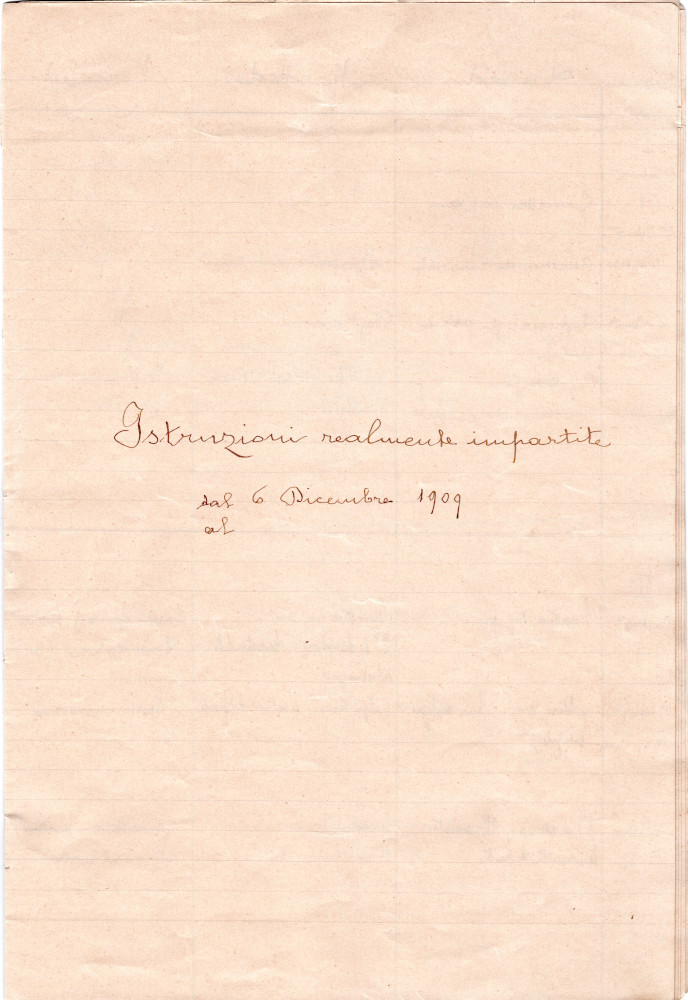 Istruzioni realmente impartite
dal 6 Dicembre 1909
al